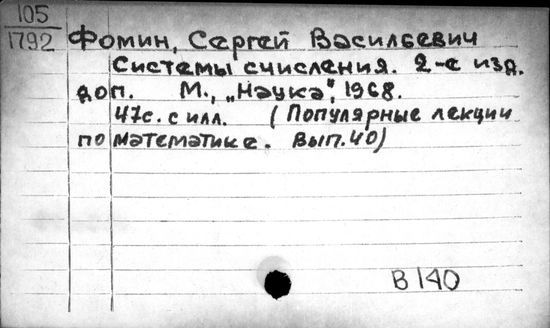 105
1792
Фомин, Сергей Васильевич
Системы счисления. 2-е изд.
доп. М., „Наука", 1968.
47с. с илл. (Популярные лекции
по математике. Вып. 40)
В 140